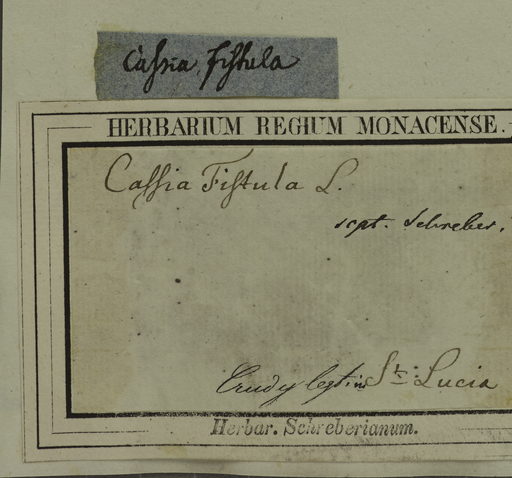 Cassia fistula
HERBARIUM REGIUM MONACENSE.
Cassia Fistula L.
scpt. Schreber.
Crudy legit in St: Lucia
Herbar. Schreberianum.